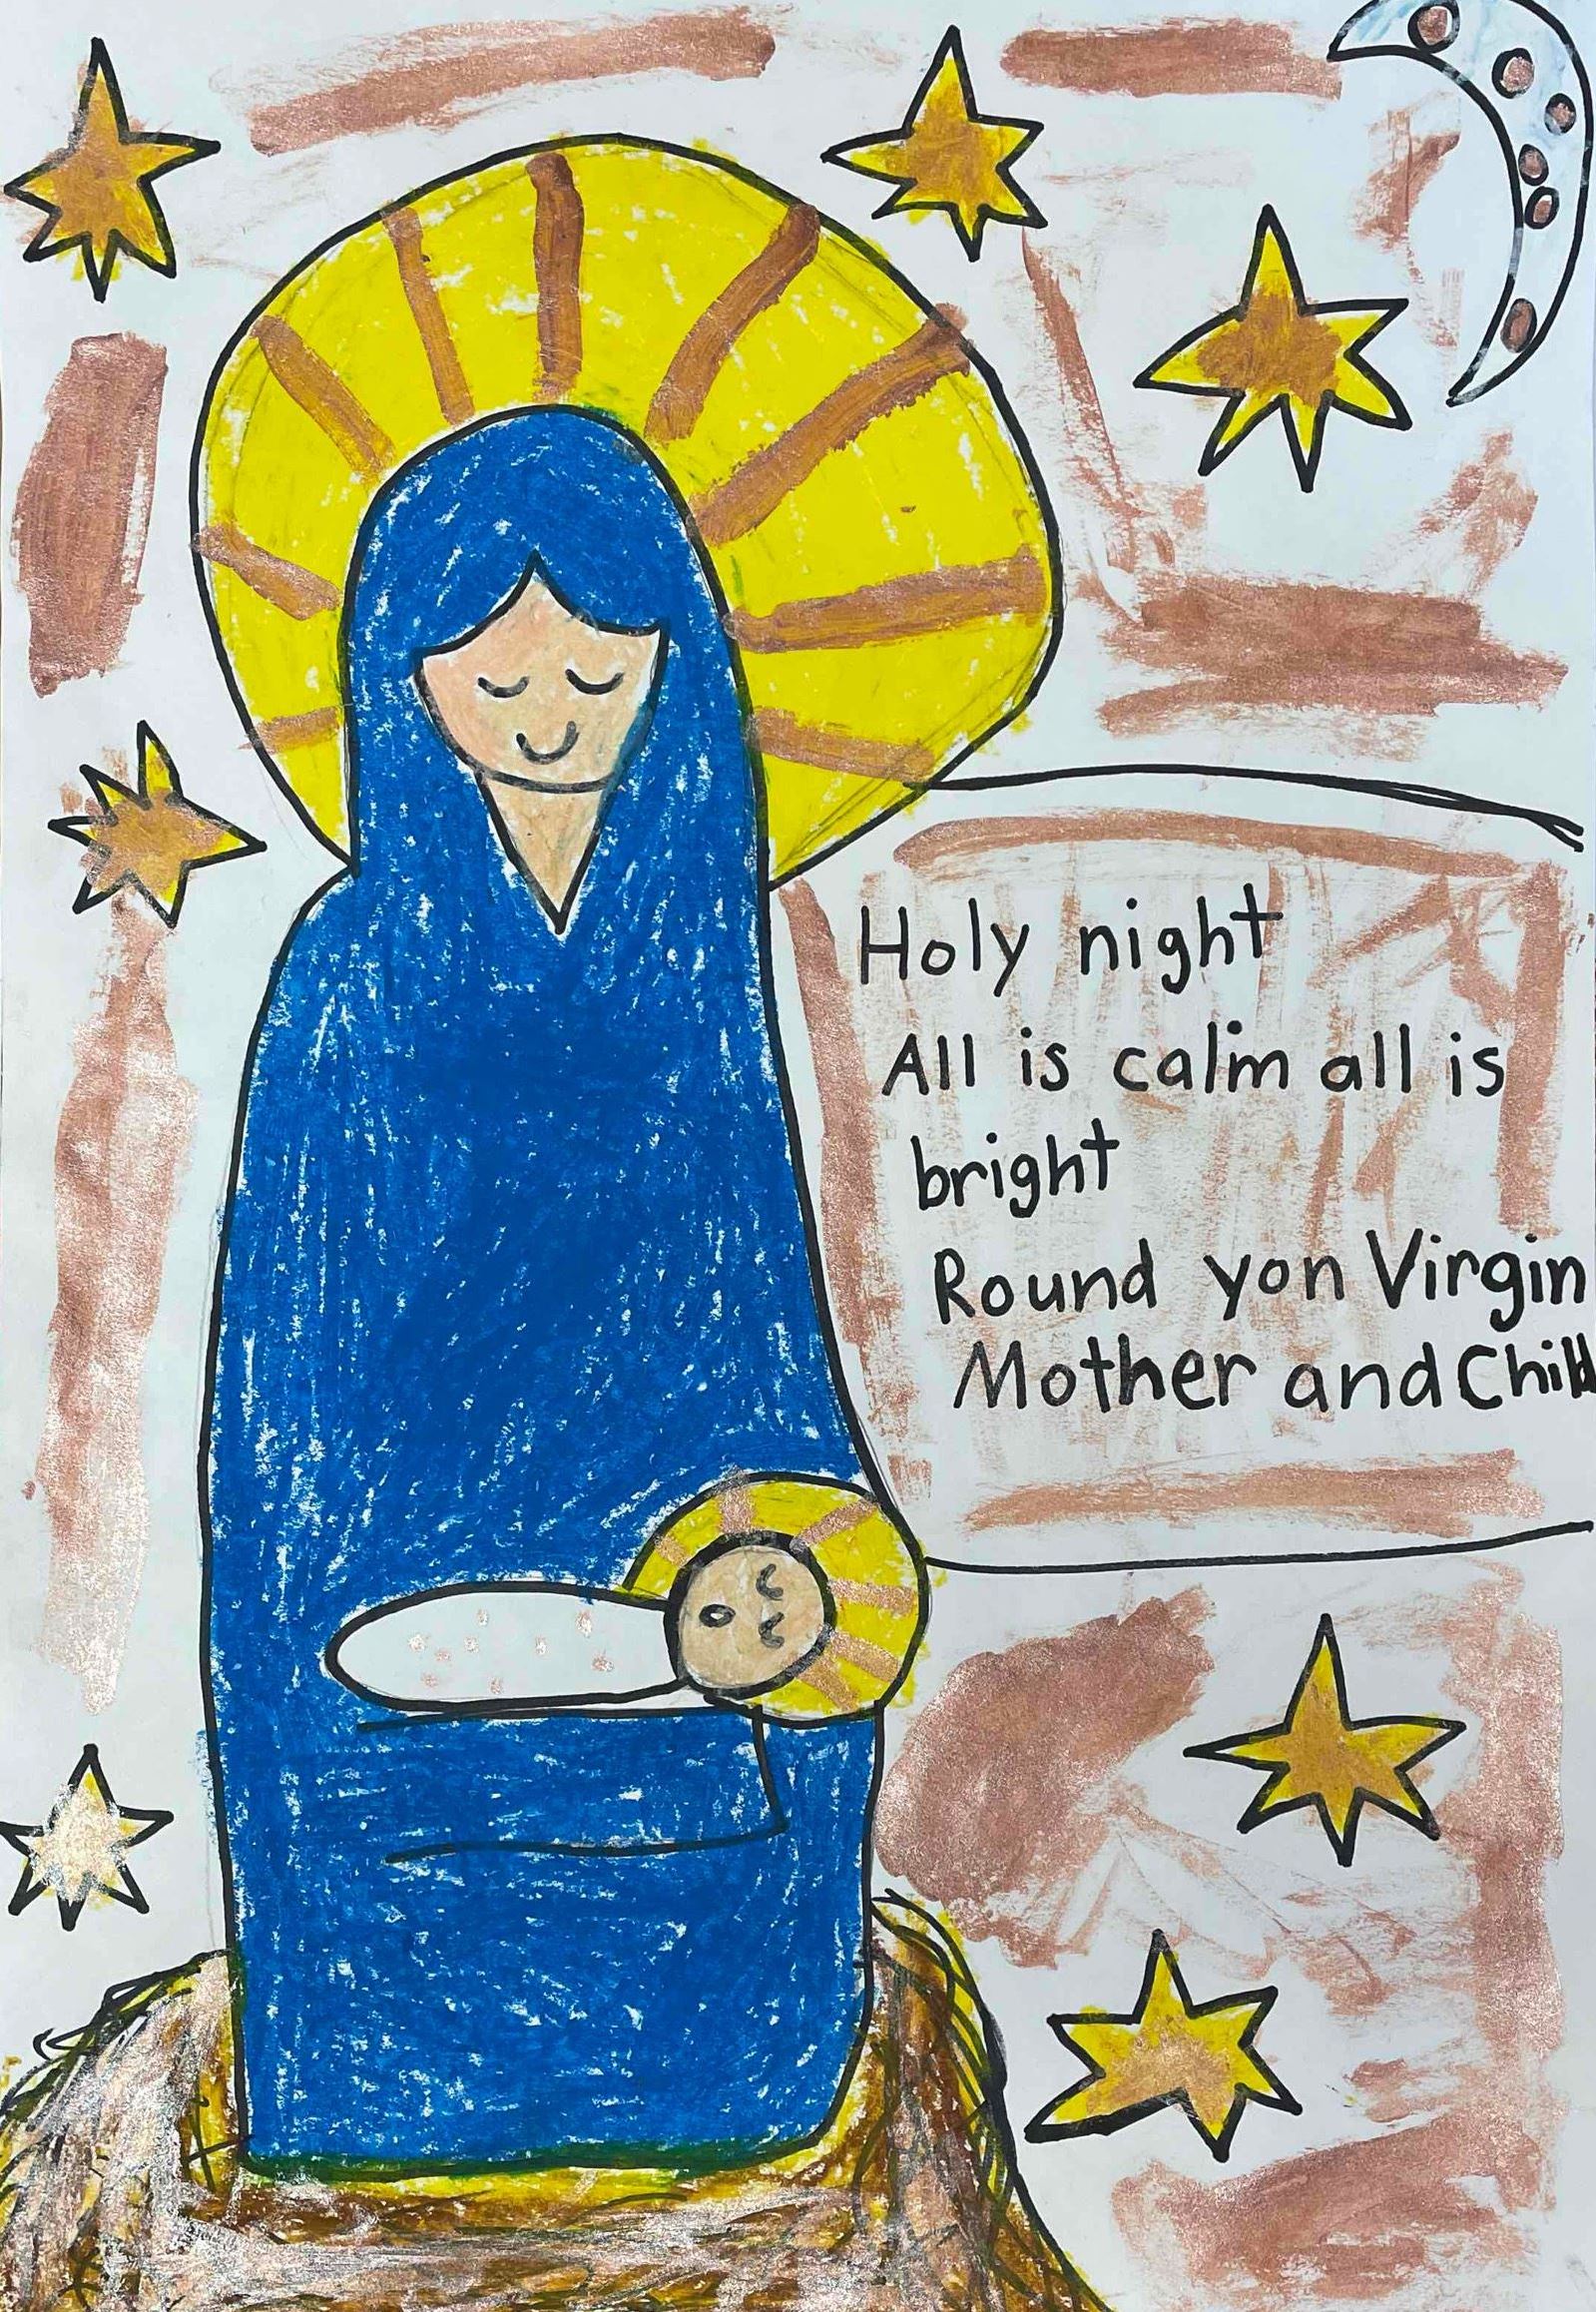 Holy night
All is calm all is
bright
Round yon Virgin
Mother and Child